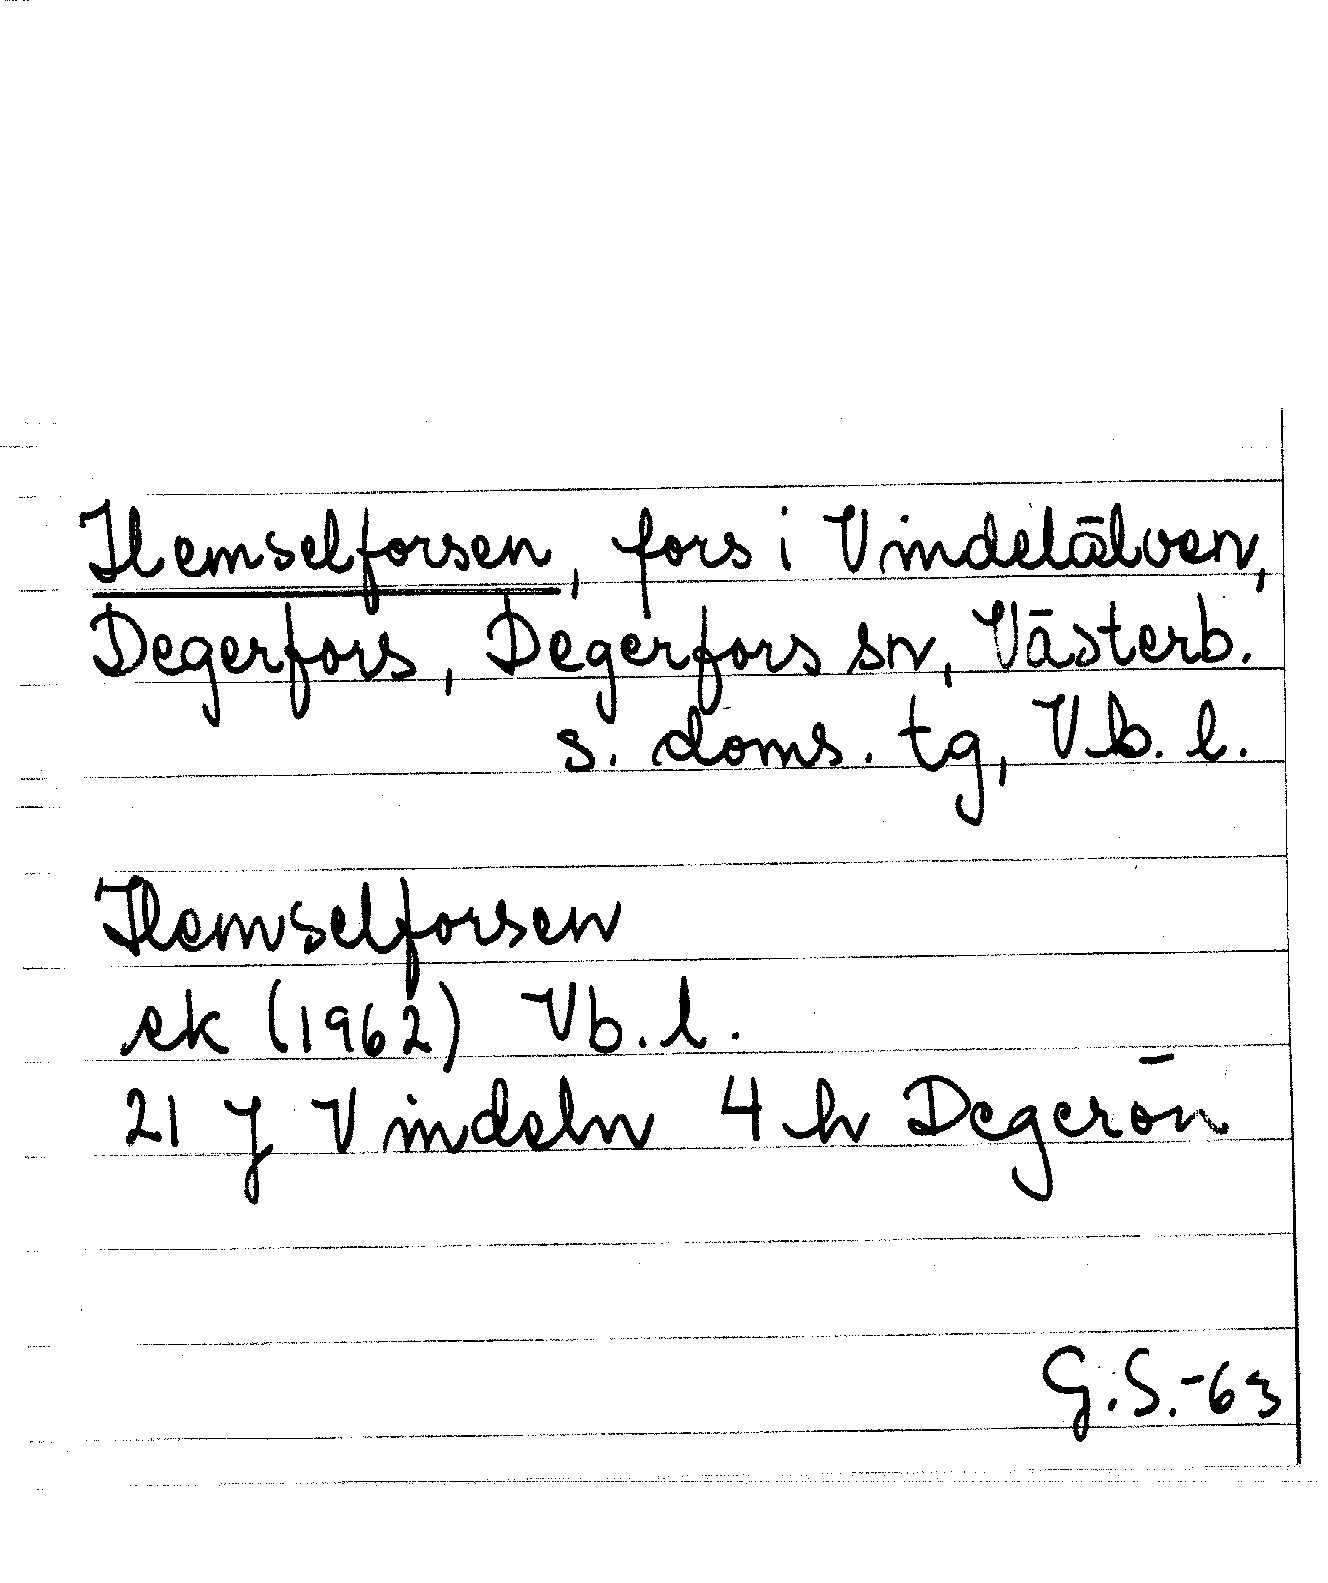 Hemselforsen, fors i Vindelälven,
Degerfors, Degerfors sn, Västerb.
s. doms. tg, Vb. l.
Hemselforsen
ek (1962) Vb. l.
21 J Vindeln 4 h Degerön
G.S.-63